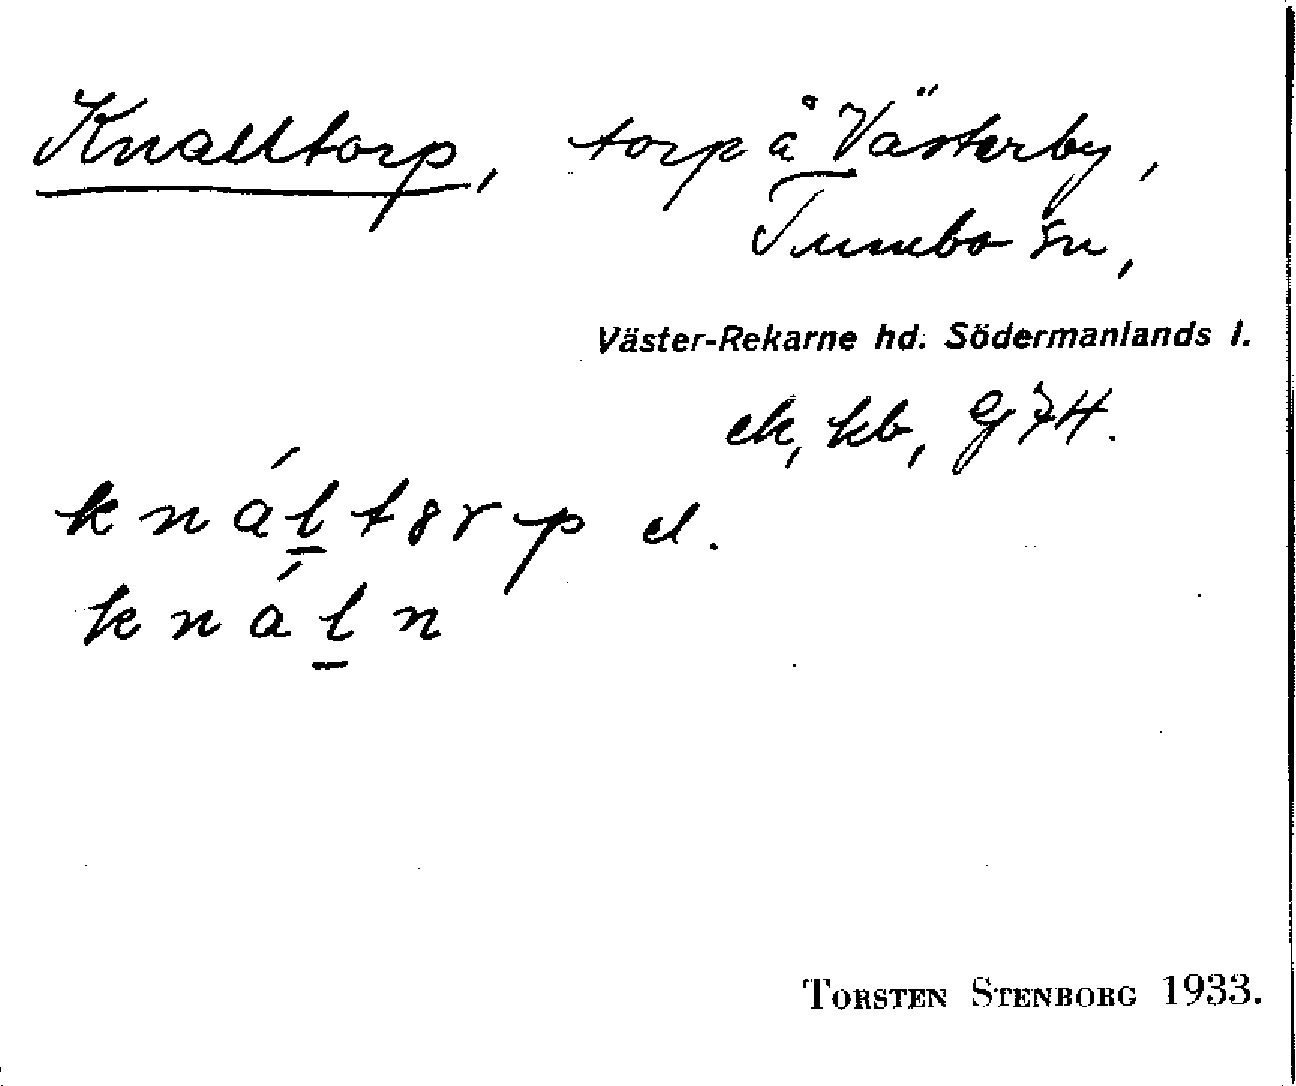 Knalltorp, torp å Västerby,
Tumbo sn,
Väster-Rekarne hd. Södermanlands l.
ek, kb, GJ74.
knál̲t8rp el.
knál̲n
TORSTEN STENBORG 1933.